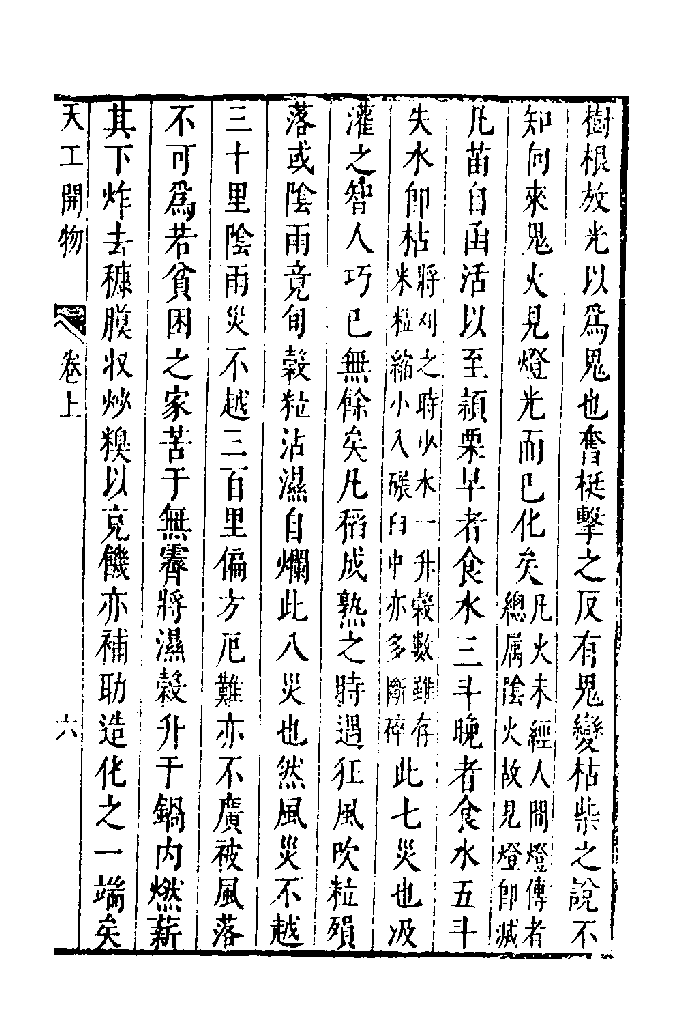 樹根放光以爲鬼也奮梃擊之反有鬼變枯柴之說不
知向來鬼火見燈光而已化矣凡火未經人間燈傳者總屬陰火故見燈即滅
凡苗自函活以至穎栗早者食水三斗晚者食水五斗
失水即枯將刈之時少水一升穀數雖存米粒縮小入碾臼中亦多斷碎此七災也汲
灌之智人巧已無餘矣凡稻成熟之時遇狂風吹粒殞
落或陰雨竟旬穀粒沾濕自爛此八災也然風災不越
三十里陰雨災不越三百里偏方厄難亦不廣被風落
不可爲若貧困之家苦于無霽將濕穀升于鍋內燃薪
其下炸去糠膜收炒糗以充饑亦補助造化之一端矣
天工開物 卷上 六